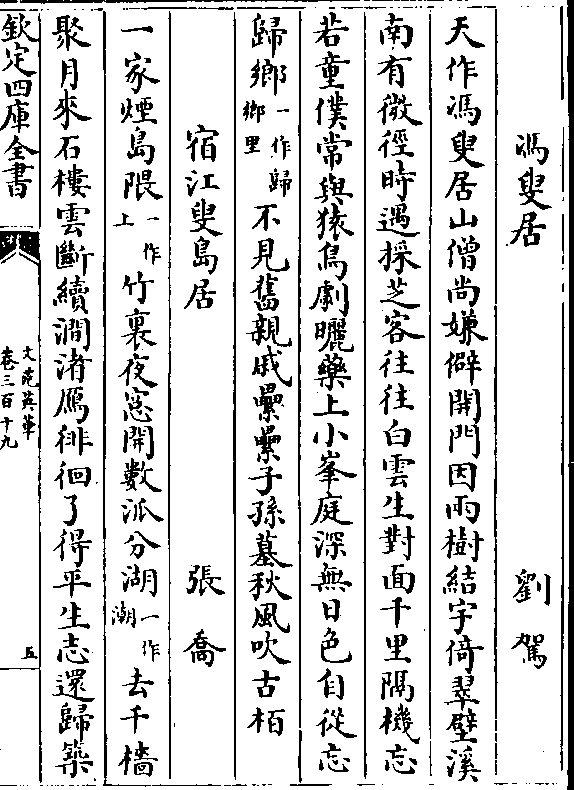 馮叟居　劉駕
天作馮叟居山僧尚嫌僻開門因雨樹結宇倚翠壁溪
南有微徑時遇採芝客往往白雲生對面千里隔機忘
若童僕常與猿鳥劇曬藥上小峯庭深無日色自從忘
歸鄉一作歸鄉里不見舊親戚纍纍子孫墓秋風吹古栢
宿江叟島居　張喬
一家煙島隈一作上竹裏夜窓開數派分湖一作潮去千檣
聚月來石樓雲斷續澗渚鴈徘徊了得平生志還歸築
欽定四庫全書
文苑英華
卷三百十九
五